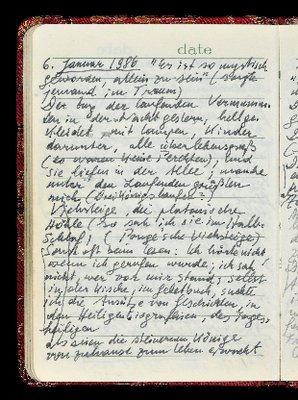 date
6. Januar 1986 "Er ist so mystisch
geworden, allein zu sein" (sagte
jemand im Traum)
Der Zug der laufenden Vermumm-
ten in der Nacht gestern, hellge-
kleidet, mit Lampen, Kinder
darunter, alle überlebensgroß
(es waren keine Perchten), und
sie liefen in der Allee, manche
unter den Laufenden grüßten
mich (Dreikönigslaufen?)
Viehsteige, die platonische
Höhle (so sah ich sie im Halb-
schlaf) (Ponge's Viehsteige)
So oft beim Lesen: Ich hörte nicht
wenn ich gerufen wurde; ich sah
nicht, wer vor mir stand; selbst
in der Kirche, im Gebetbuch, suchte
ich die Ansätze von Geschichten, in
den Heiligenbiografien, des Tages-
heiligen
als seien die steinernen Könige
von zuhause zum Leben erwacht